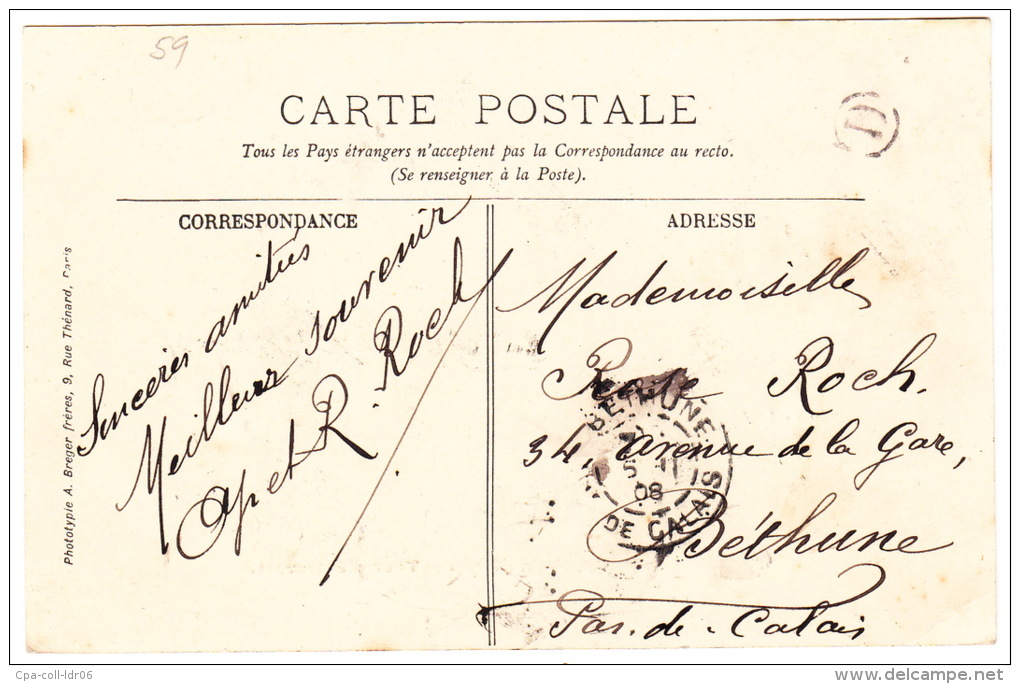 59
CARTE POSTALE
D
Tous les Pays étrangers n'acceptent pas la Correspondance au recto.
(Se renseigner à la Poste).
CORRESPONDANCE
Sincères amitiés
Meilleur souvenir
et R. Roch
ADRESSE
Mademoiselle
Roch.
34 avenue de la Gare,
Béthune
Pas-de-Calais
BETHUNE
08
DE CALAIS
Phototypie A. Breger frères, 9, Rue Thénard, Paris
Cpa-coll-ldr06
www.delcampe.net